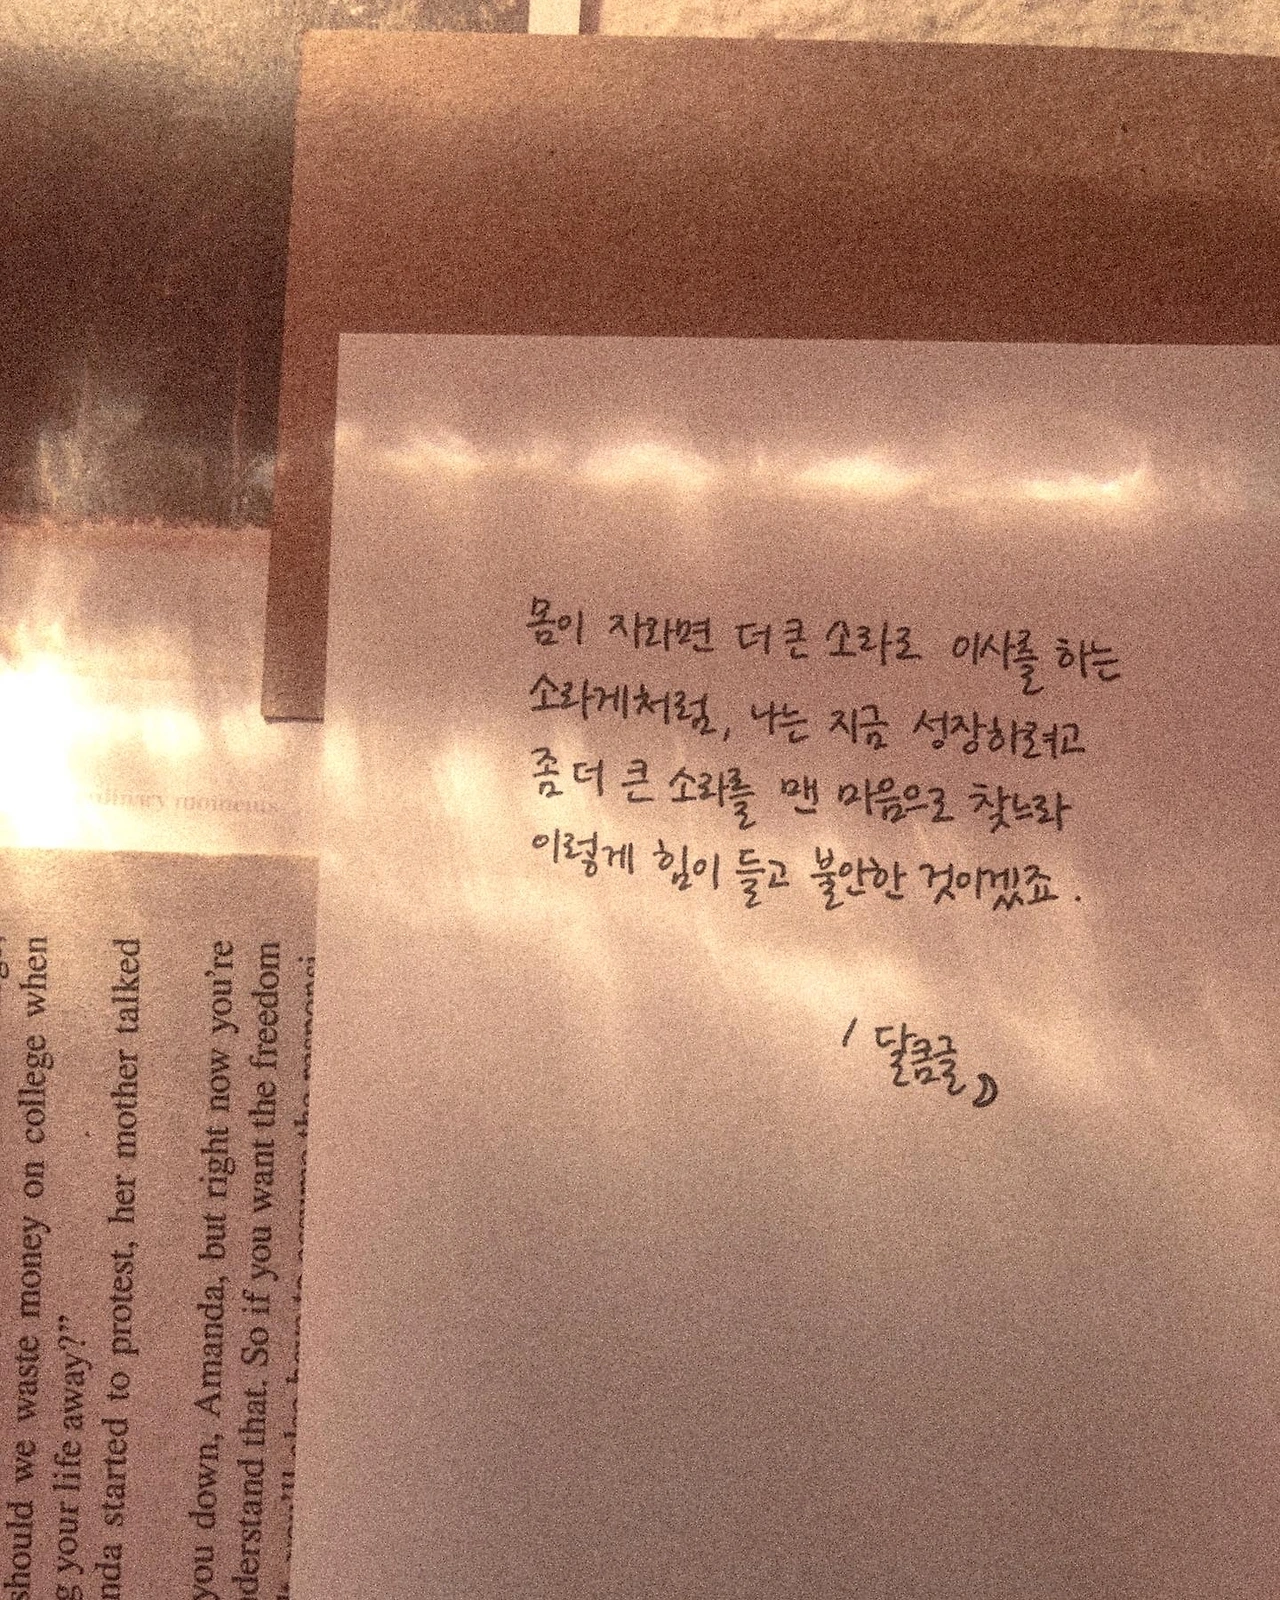 몸이 자라면 더 큰 소라로 이사를 하는
소라게처럼, 나는 지금 성장하려고
좀 더 큰 소라를 맨 마음으로 찾느라
이렇게 힘이 들고 불안한 것이겠죠.
/ 달콤글
moments
should we waste money on college when
g your life away?”
nda started to protest, her mother talked
you down, Amanda, but right now you're
derstand that. So if you want the freedom